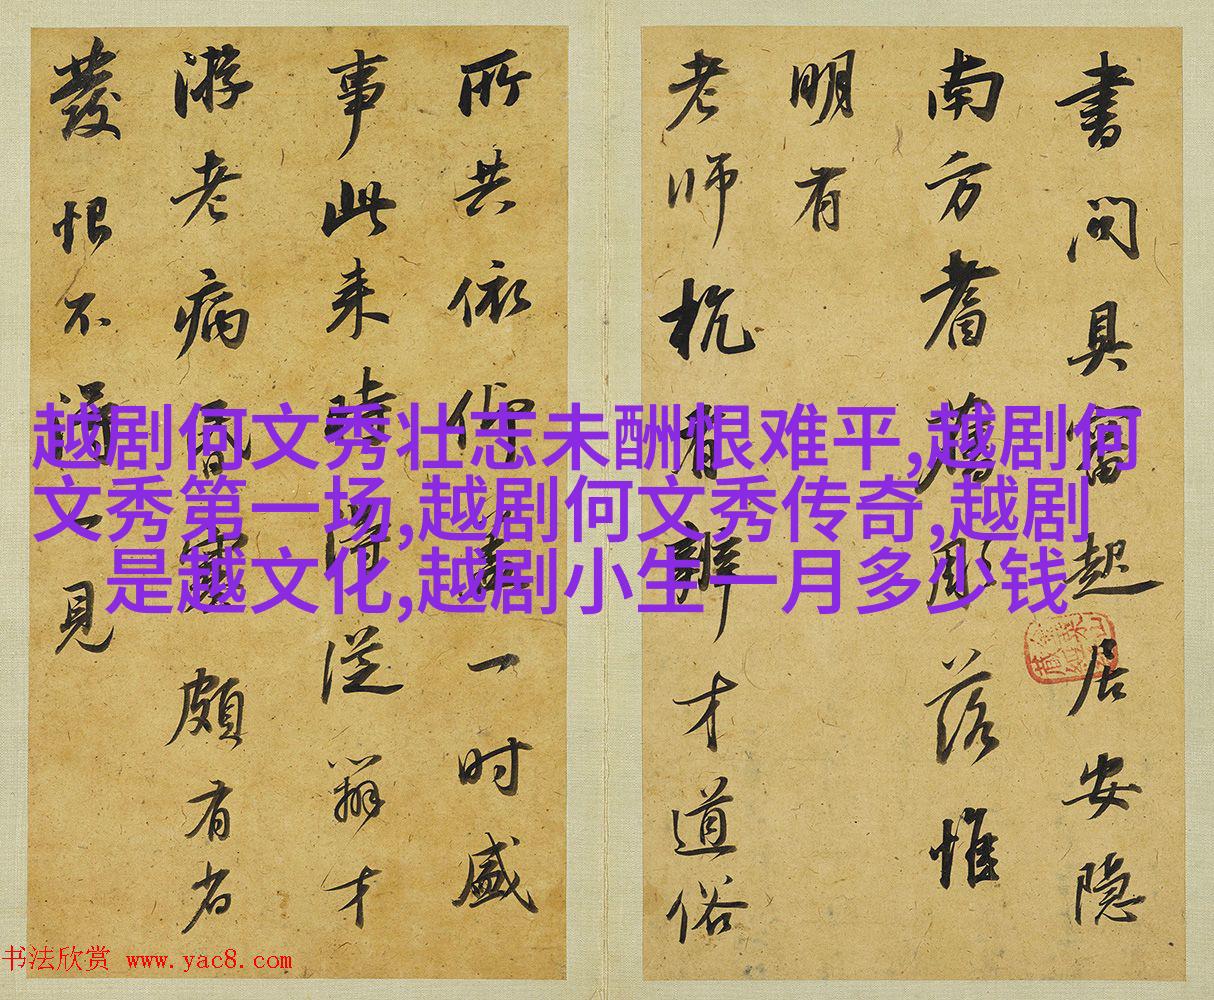 書問具審起居安隱
南方耆舊彫落惟
明有
老師杭有辯才道俗
所共依仰蓋一時盛
事此来時得從辯才
游老病昏塞頗有省
發恨不一見
越剧何文秀壮志未酬恨难平,越剧何
文秀第一场,越剧何文秀传奇,越剧
是越文化,越剧小生一月多少钱
书法欣赏 www.yac8.com